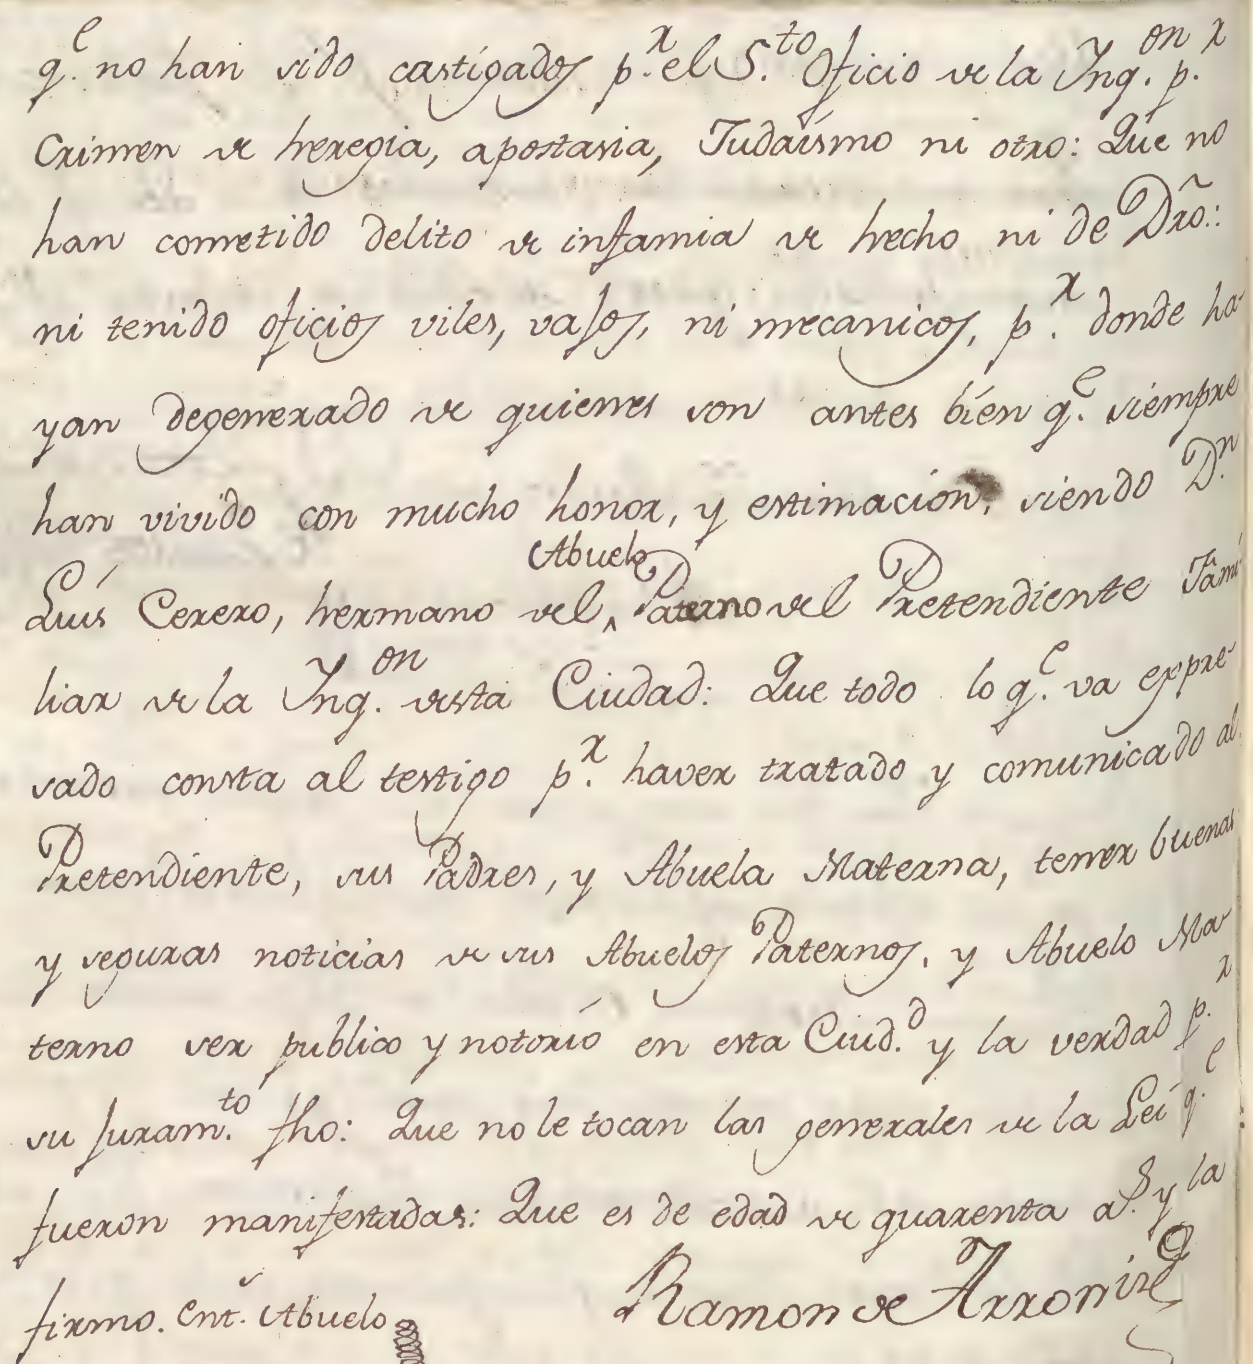 q.e no han sido castigados p.r el S.to Oficio de la Ynq.on p.r
Crimen de heregia, apostasia, Judaismo ni otro: Que no
han cometido delito de infamia de hecho ni de Dr̃o.:
ni tenido oficios viles, vajos, ni mecanicos, p.r donde ha
yan degenerado de quienes son antes bien q.e siempre
han vivido con mucho honor, y estimacion, siendo D.n
Abuelo
Luis Cerero, hermano del ^ Paterno del Pretendiente Fami
liar de la Ynq.on desta Ciudad: Que todo lo q.e va expre
sado consta al testigo p.r haver tratado y comunicado al
Pretendiente, sus Padres, y Abuela Materna, tener buenas
y seguras noticias de sus Abuelos Paternos, y Abuelo Ma
terno ser publico y notorio en esta Ciud.d y la verdad p.r
su juram.to fho: Que no le tocan las generales de la Lei q.e
fueron manifestadas: Que es de edad de quarenta a.s y la
firmo. Ent.s Abuelo
Ramon de Arroniz